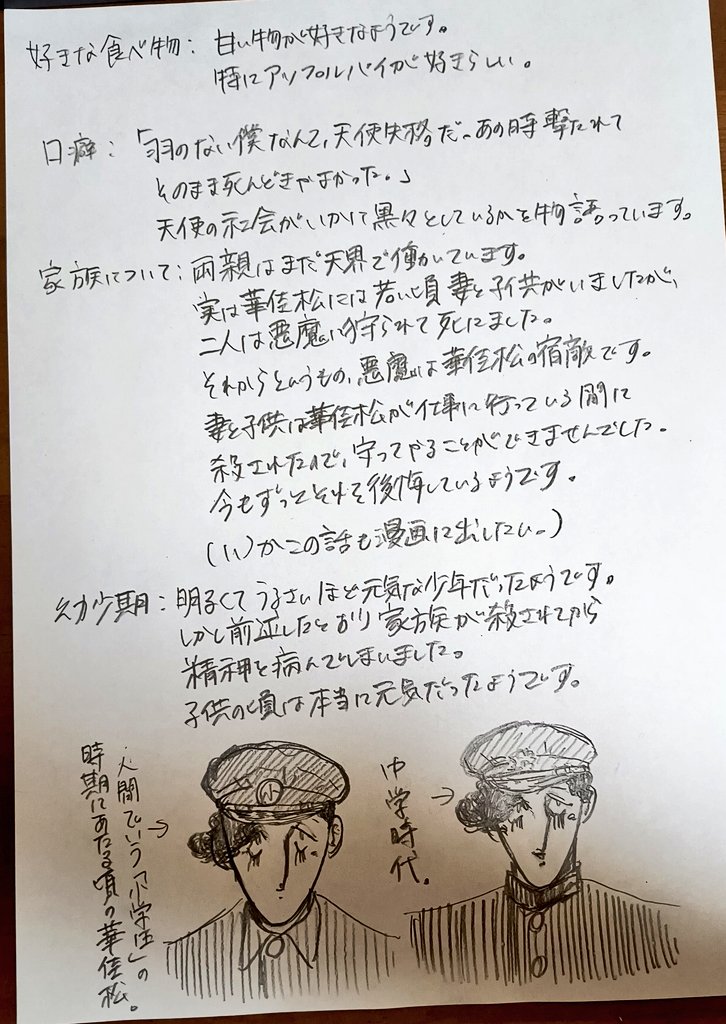 好きな食べ物：甘い物が好きなようです。
特にアップルパイが好きらしい。
口癖：「羽のない僕なんて、天使失格だ。あの時撃たれて
そのまま死んどきゃよかった。」
天使の社会がいかに黒々としているかを物語っています。
家族について：両親はまだ天界で働いています。
実は華佳松には若い頃妻と子供がいましたが、
二人は悪魔に狩られて死にました。
それからというもの、悪魔は華佳松の宿敵です。
妻と子供は華佳松が仕事に行っている間に
殺されたので、守ってやることができませんでした。
今もずっとそれを後悔しているようです。
(いつかこの話も漫画に出したい。)
幼少期：明るくてうるさいほど元気な少年だったようです。
しかし前述したとおり家族が殺されてから
精神を病んでしまいました。
子供の頃は本当に元気だったようです。
人間でいう「小学生」の
時期にあたる頃の華佳松。
小
中学時代。